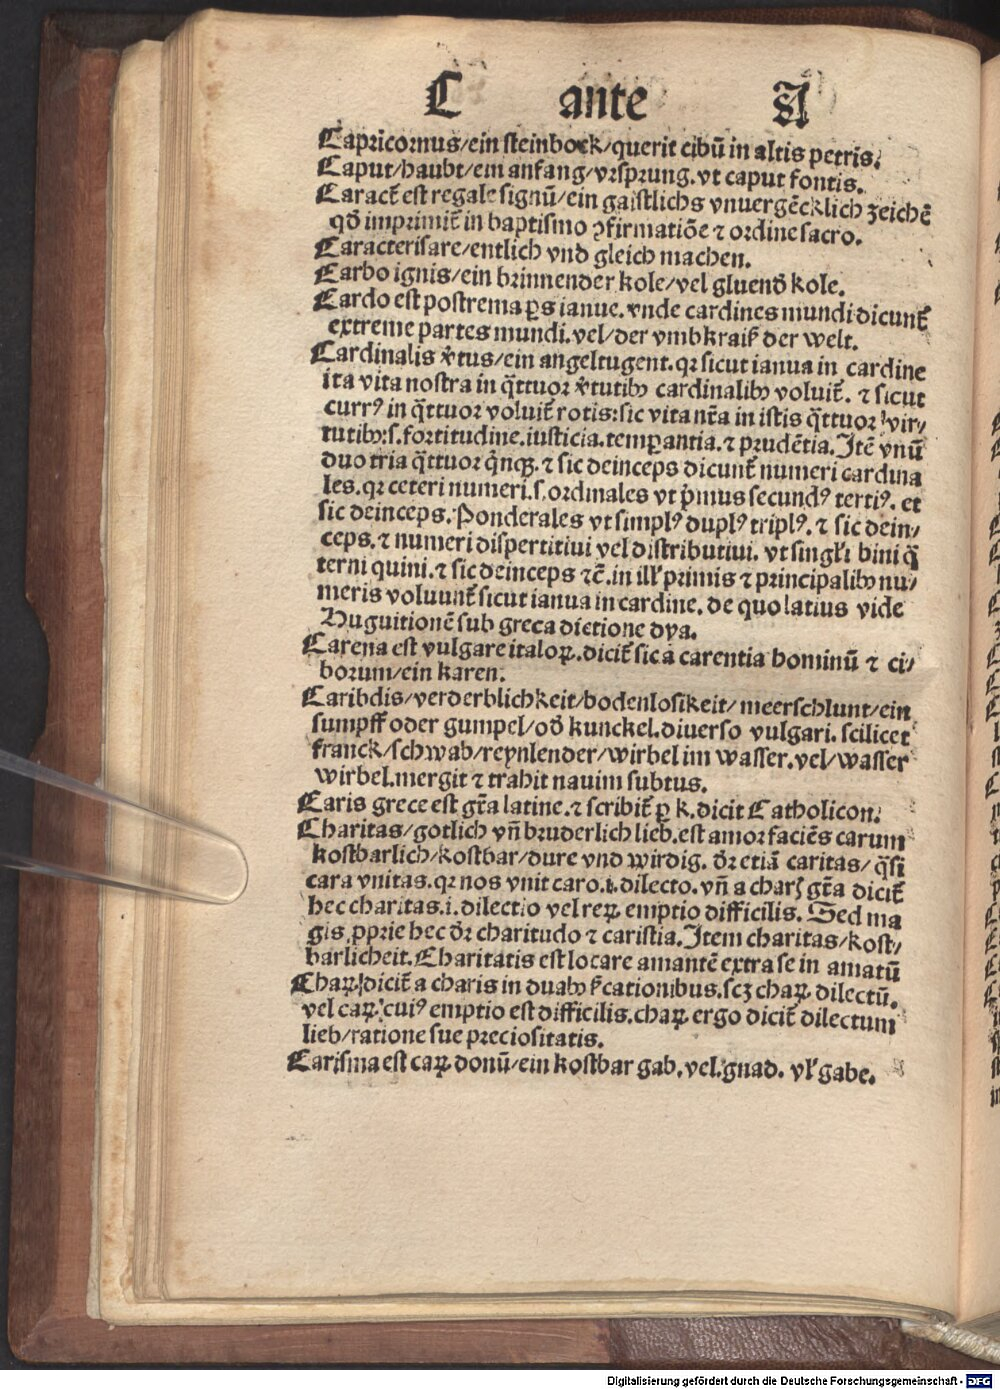 C ante A
Capricornus/ein steinbock/querit cibū in altis petris.
Caput/haubt/ein anfang/vrsprung.vt caput fontis.
Caract̄ est regale signū/ein gaistlichs vnuergēcklich zeichē
qď imprimit̄ in baptismo ꝯfirmatiōe ⁊ ordine sacro.
Caracterisare/entlich vnd gleich machen.
Carbo ignis/ein brinnender kole/vel gluenď kole.
Cardo est postrema ꝑs ianue.vnde cardines mundi dicunt̄
extreme partes mundi.vel/der vmbkraiß der welt.
Cardinalis v̄tus/ein angeltugent.qꝛ sicut ianua in cardine
ita vita nostra in q̄ttuor v̄tutibꝫ cardinalibꝫ voluit̄. ⁊ sicut
currꝰ in q̄ttuor voluit̄ rotis:sic vita nr̄a in istis q̄ttuor vir/
tutibꝫ:s.fortitudine.iusticia.temꝑantia.⁊ prudētia.Itē vnū
duo tria q̄ttuor q̄nqꝫ.⁊ sic deinceps dicunt̄ numeri cardina
les.qꝛ ceteri numeri.s.ordinales vt p̄mus secundꝰ tertiꝰ. et
sic deinceps.Ponderales vt simplꝰ duplꝰ triplꝰ. ⁊ sic dein/
ceps.⁊ numeri dispertitiui vel distributiui. vt singƚi bini q̄
terni quini.⁊ sic deinceps ⁊c̄.in illꝭ primis ⁊ principalibꝫ nu/
meris voluunt̄ sicut ianua in cardine. de quo latius vide
Huguitionē sub greca dictione dya.
Carena est vulgare italoꝝ.dicit̄ sic a carentia hominū ⁊ ci/
borum/ein karen.
Caribdis/verderblichkeit/bodenlosikeit/meerschlunt/ein
sumpff oder gumpel/oď kunckel.diuerso vulgari. scilicet
franck/schwab/reynlender/wirbel im wasser.vel/wasser
wirbel.mergit ⁊ trahit nauim subtus.
Caris grece est gr̄a latine.⁊ scribit̄ ꝑ k.dicit Catholicon.
Charitas/gotlich vn̄ bruderlich lieb.est amor faciēs carum
kostbarlich/kostbar/dure vnd wirdig. dr̄ etiā caritas/ q̄si
cara vnitas.qꝛ nos vnit caro.i.dilecto. vn̄ a charꝭ gr̄a dicit̄
hec charitas.i.dilectio vel reꝝ emptio difficilis. Sed ma
gis ꝓprie hec dr̄ charitudo ⁊ caristia.Item charitas/kost/
barlicheit.Charitatis est locare amantē extra se in amatū
Chaꝝ dicit̄ a charis in duabꝫ sꝭcationibus.scꝫ chaꝝ dilectū.
vel caꝝ cuiꝰ emptio est difficilis.chaꝝ ergo dicit̄ dilectum
lieb/ratione sue preciositatis.
Carisma est caꝝ donū/ein kostbar gab.vel.gnad. vƚ gabe.
Digitalisierung gefördert durch die Deutsche Forschungsgemeinschaft - DFG